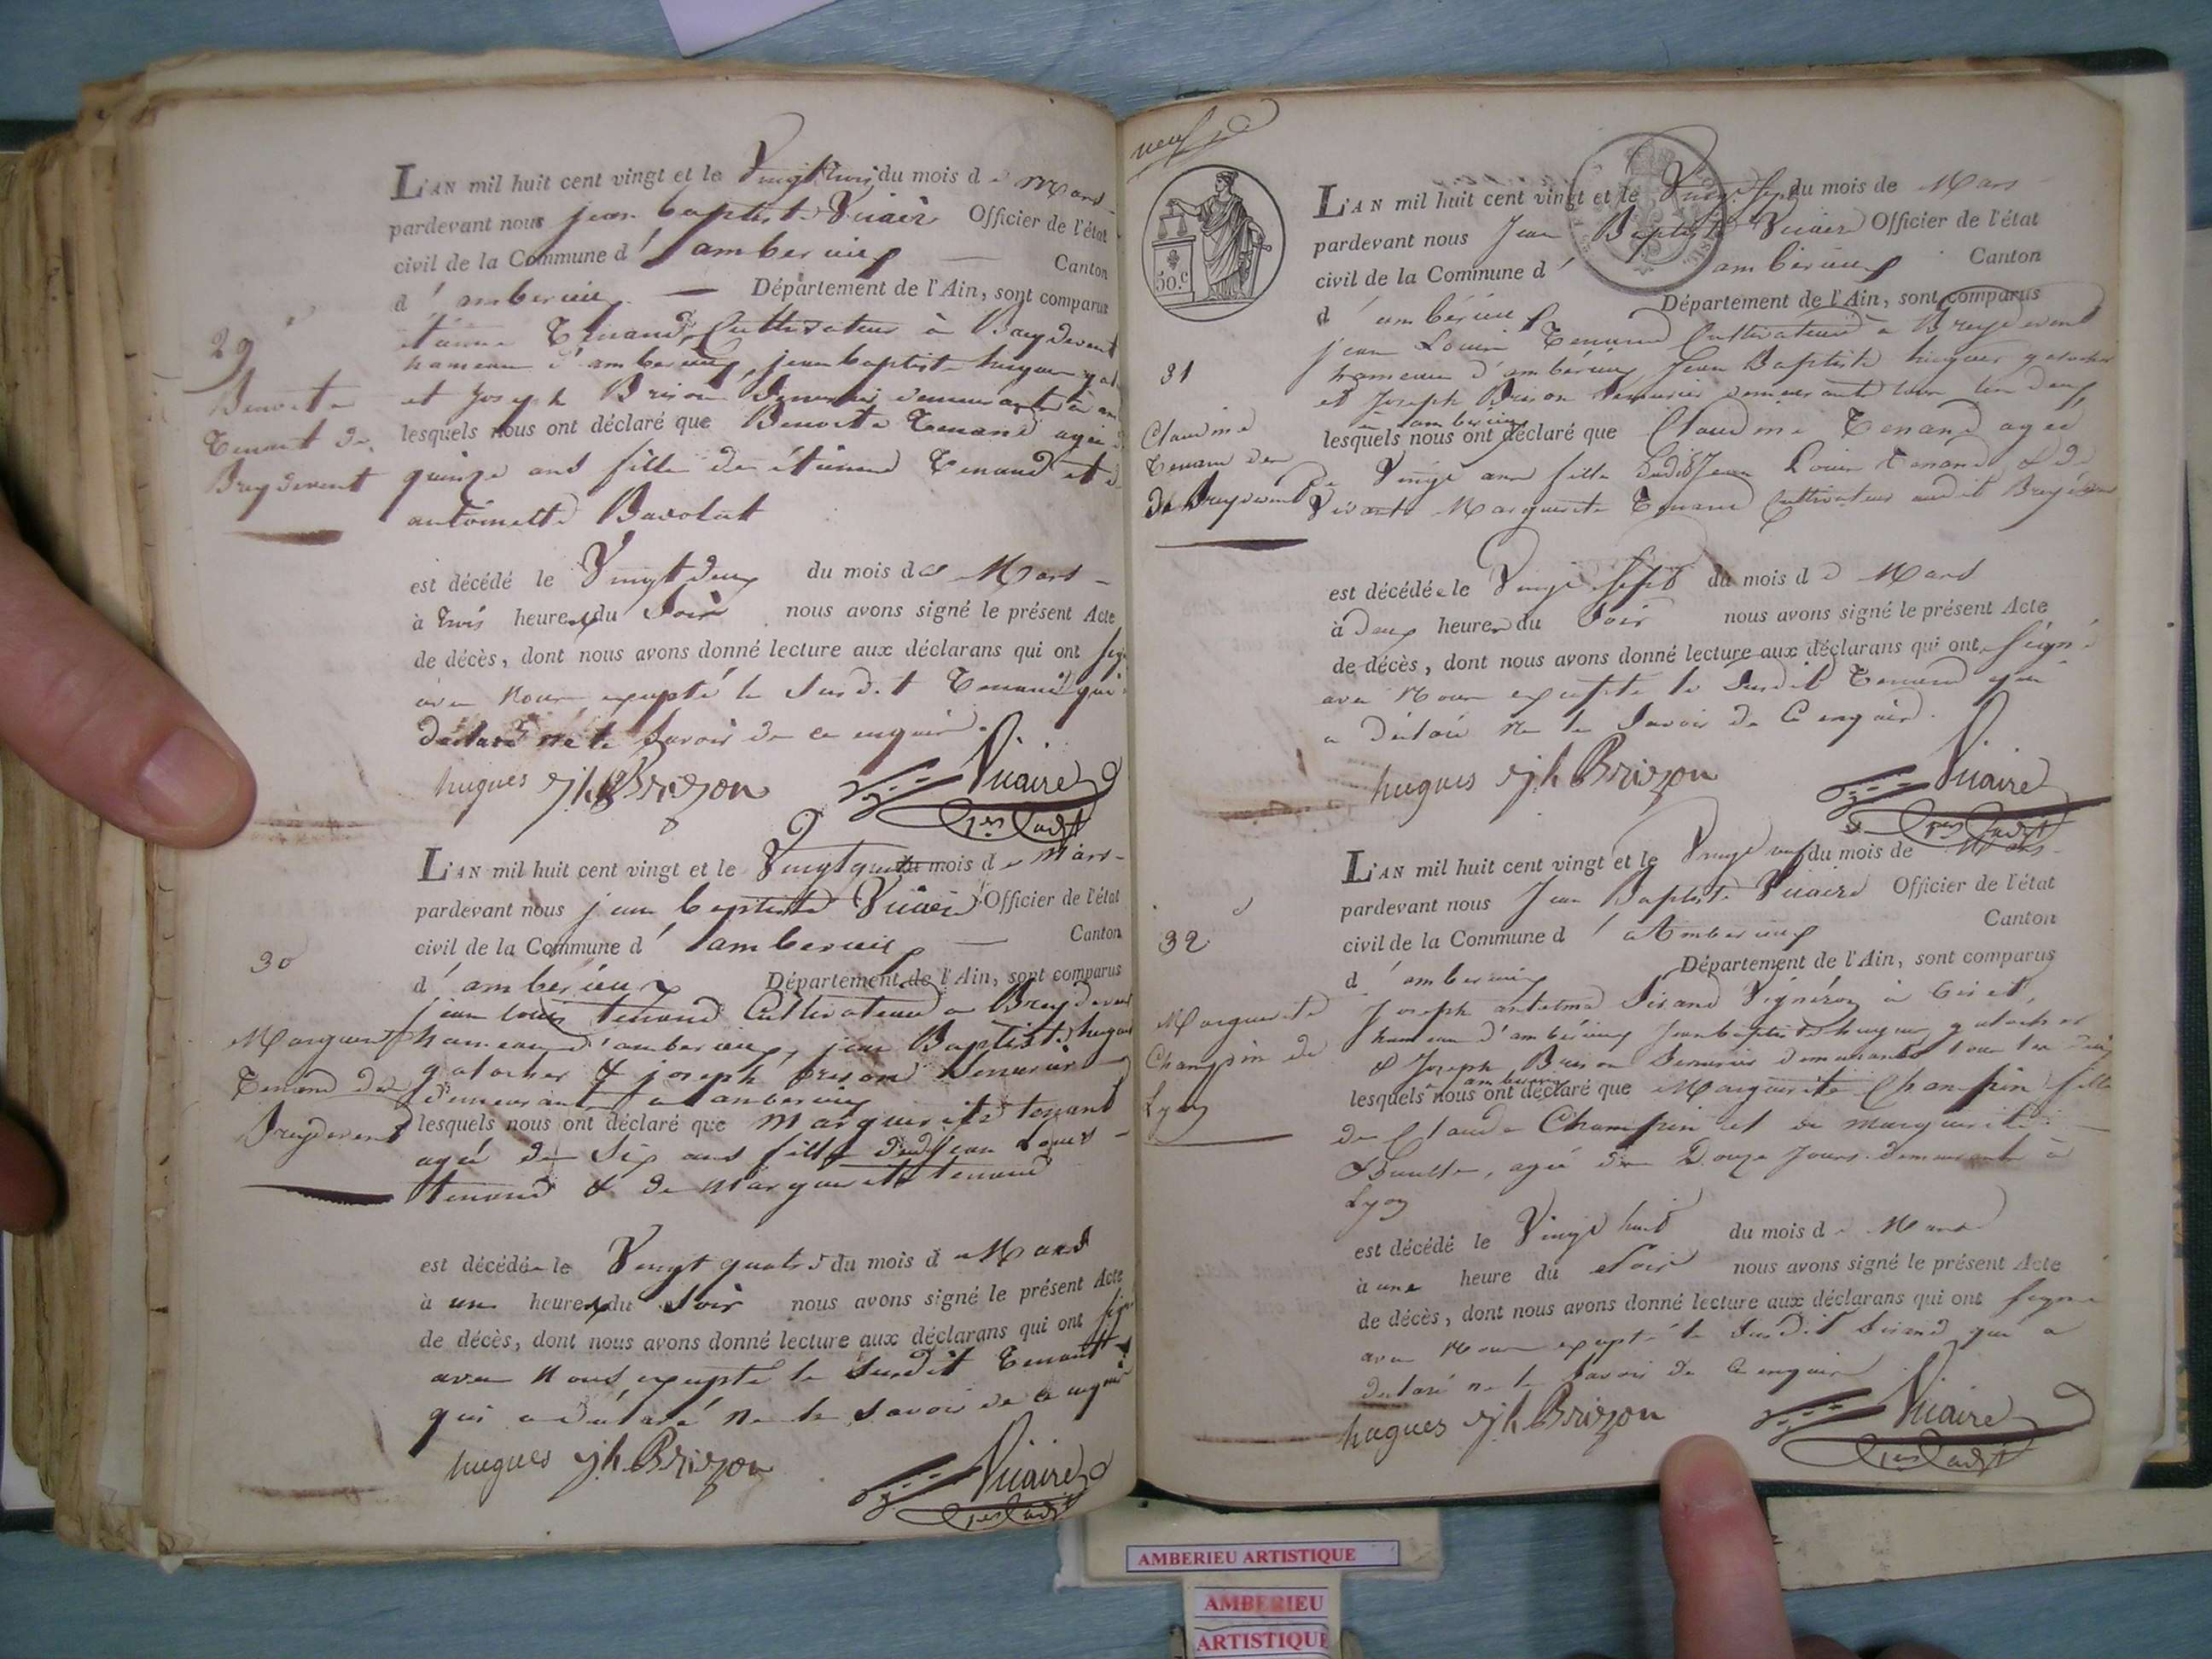 L'AN mil huit cent vingt et le Vingt trois du mois de Mars
pardevant nous jean baptiste Vicaire Officier de l'état
civil de la Commune d' amberieux Canton
d' amberieux Département de l'Ain, sont comparus
étienne Tenand Cultivateur à Breydevent
hameau d'amberieux, jean baptiste hugues
et Joseph Brison Serrurier demeurants à
lesquels nous ont déclaré que Benoite Tenand agée
quinze ans fille de étienne Tenand et
antoinette
est décédé le Vingt deux du mois de Mars
à trois heures du Soir nous avons signé le présent Acte
de décès, dont nous avons donné lecture aux déclarans qui ont
avec nous excepté le Susdit Tenand qui
déclaré ne le Savoir de ce enquis.
hugues jh Brizon Vicaire
29
Benoite
Tenant de
Breydevent
L'AN mil huit cent vingt et le Vingt quatre du mois de Mars
pardevant nous jean baptiste Vicaire Officier de l'état
civil de la Commune d' amberieux Canton
d' amberieux Département de l'Ain, sont comparus
jean louis tenand Cultivateur a Breydevent
hameau d'amberieux, jean Baptiste hugues
galocher & joseph brison Serrurier
demeurants a amberieux
lesquels nous ont déclaré que Marguerite tenand
agée de Six ans fille dudit jean Louis
tenand & de Marguerite tenand
est décédée le Vingt quatre du mois de Mars
à une heure du Soir nous avons signé le présent Acte
de décès, dont nous avons donné lecture aux déclarans qui ont
avec Nous excepté le Susdit Tenant
qui a déclaré ne le Savoir de ce enquis
hugues jh Brizon Vicaire
30
Marguerite
Tenand de
Breydevent
neuf
50.c
L'AN mil huit cent vingt et le Vingt Sept du mois de Mars
pardevant nous Jean Baptiste Vicaire Officier de l'état
civil de la Commune d' amberieux Canton
d' amberieux Département de l'Ain, sont comparus
jean Louis Tenand Cultivateur à Breydevent
hameau d'amberieux Jean Baptiste hugues galocher
et Joseph Brison Serrurier demeurants tous les deux
à amberieux
lesquels nous ont déclaré que Claudine Tenand agée
de Vingt ans fille dudit Jean Louis Tenand & de
Vivante Marguerite Tenand Cultivateur audit
est décédée le Vingt Sept du mois de Mars
à deux heures du Soir nous avons signé le présent Acte
de décès, dont nous avons donné lecture aux déclarans qui ont Signé
avec Nous excepté le Susdit Tenand qui
a déclaré ne le Savoir de Ce enquis.
hugues jh Brizon Vicaire
31
Claudine
Tenand
de Breydevent
L'AN mil huit cent vingt et le Vingt neuf du mois de Mars
pardevant nous Jean Baptiste Vicaire Officier de l'état
civil de la Commune d' Amberieux Canton
d' amberieux Département de l'Ain, sont comparus
Joseph antelme Sirand Vigneron à
hameau d'amberieux Jean baptiste hugues galocher
& Joseph Brison Serrurier demeurants tous les deux
à amberieux
lesquels nous ont déclaré que Marguerite Champin fille
de Claude Champin et de marguerite
agée de Douze Jours demeurante à
Lyon
est décédé le Vingt huit du mois de Mars
à une heure du Soir nous avons signé le présent Acte
de décès, dont nous avons donné lecture aux déclarans qui ont signé
avec Nous excepté le Susdit Sirand qui a
déclaré ne le Savoir de Ce enquis
hugues jh Brizon Vicaire
32
Marguerite
Champin de
Lyon
AMBERIEU ARTISTIQUE
AMBERIEU
ARTISTIQUE